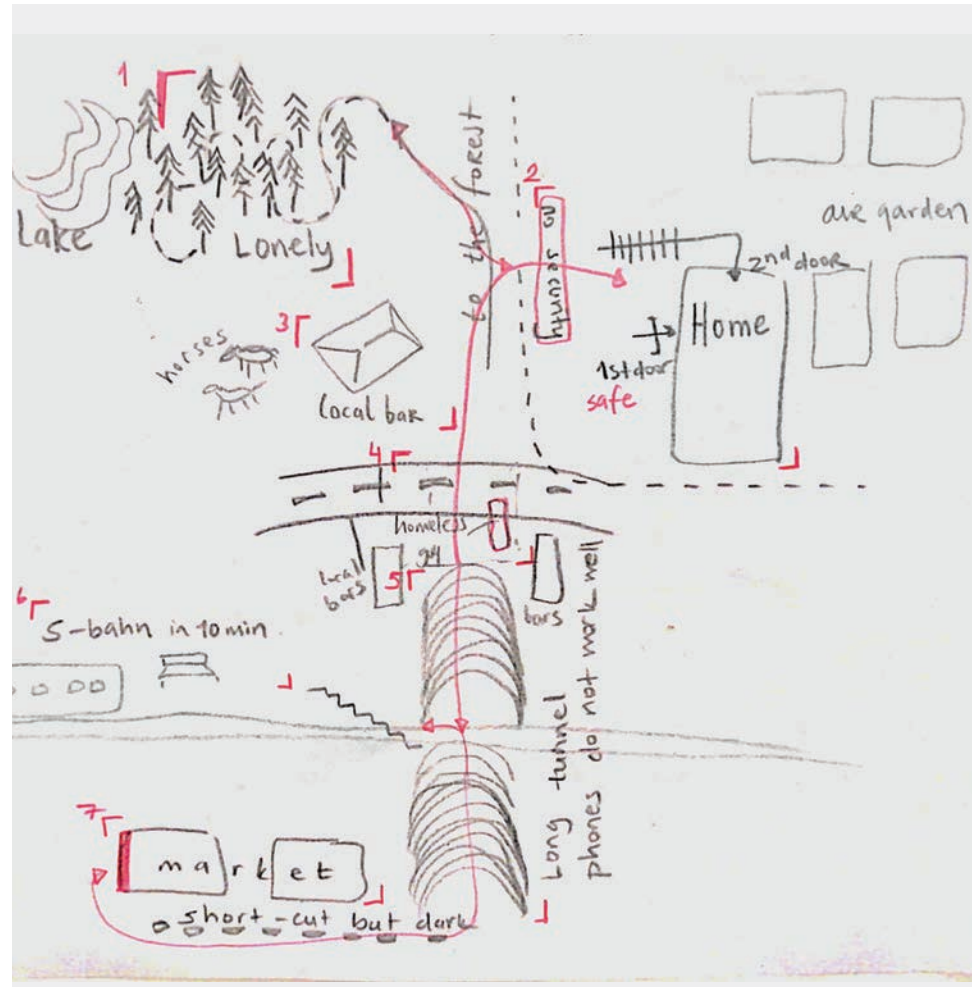 1
Lake
Lonely
to the forest
2
no security
our garden
2nd door
Home
1st door
safe
3
horses
local bar
4
homeless
local
bars
5
bars
6
S-bahn in 10 min
Long tunnel
phones do not work well
7
market
short-cut but dark